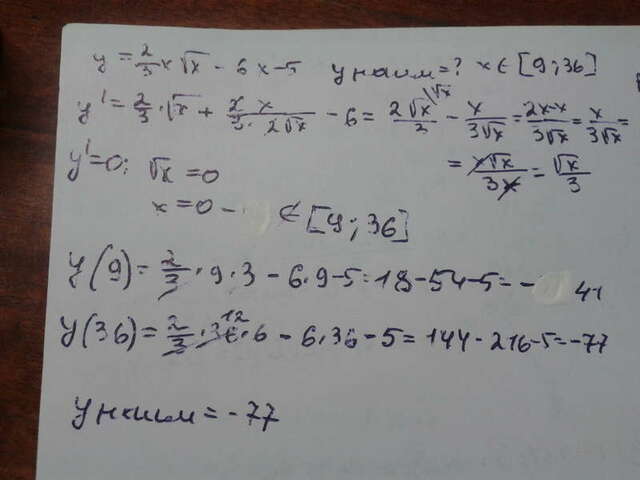 y = 2/3 x √x - 6x - 5 y наим = ? x ∈ [9; 36]
y' = 2/3 · √x + 2 · x / 3 · 2√x - 6 = 2√x / 3 - x / 3√x = 2x-x / 3√x = x / 3√x =
= x√x / 3x = √x / 3
y' = 0; √x = 0
x = 0 - ∉ [9; 36]
y(9) = 2/3 · 9 · 3 - 6 · 9 - 5 = 18 - 54 - 5 = - 41
y(36) = 2/3 · 36 · 6 - 6 · 36 - 5 = 144 - 216 - 5 = -77
y наим = -77